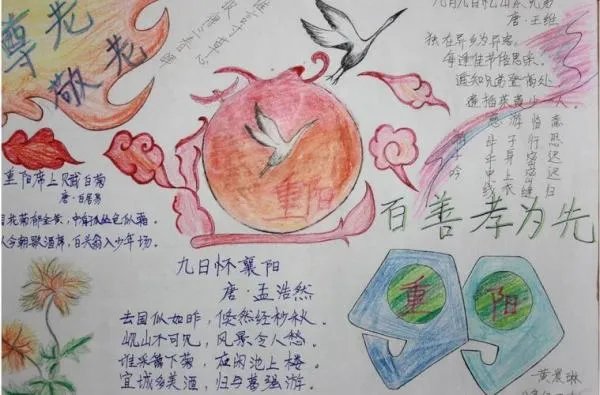 尊老
敬老
谁言寸草心
报得三春晖
九月九日忆山东兄弟
唐·王维
独在异乡为异客，
每逢佳节倍思亲。
遥知兄弟登高处
遍插茱萸少一人。
慈母手中线
游子身上衣
临行密密缝
意恐迟迟归
重阳
百善孝为先
重阳席上赋白菊
唐·白居易
花菊郁金黄，中有孤丛色似霜。
今朝歌酒席，白头翁入少年场。
九日怀襄阳
唐·孟浩然
去国似如昨，倏然经杪秋。
岘山不可见，风景令人愁。
谁采篱下菊，应闲池上楼。
宜城多美酒，归与葛强游。
重阳